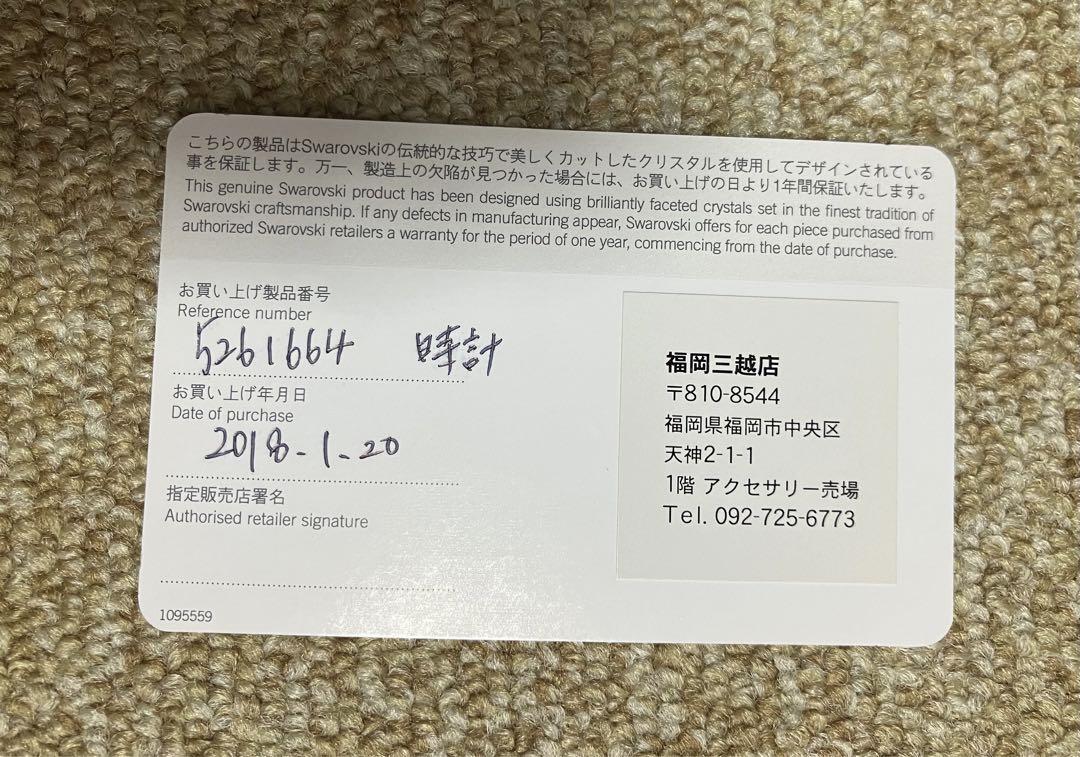 こちらの製品はSwarovskiの伝統的な技巧で美しくカットしたクリスタルを使用してデザインされている
事を保証します。万一、製造上の欠陥が見つかった場合には、お買い上げの日より1年間保証いたします。
This genuine Swarovski product has been designed using brilliantly faceted crystals set in the finest tradition of
Swarovski craftsmanship. If any defects in manufacturing appear, Swarovski offers for each piece purchased from
authorized Swarovski retailers a warranty for the period of one year, commencing from the date of purchase.
お買い上げ製品番号
Reference number
5261664 時計
お買い上げ年月日
Date of purchase
2018.1.20
指定販売店署名
Authorised retailer signature
1095559
福岡三越店
〒810-8544
福岡県福岡市中央区
天神2-1-1
1階 アクセサリー売場
Tel. 092-725-6773